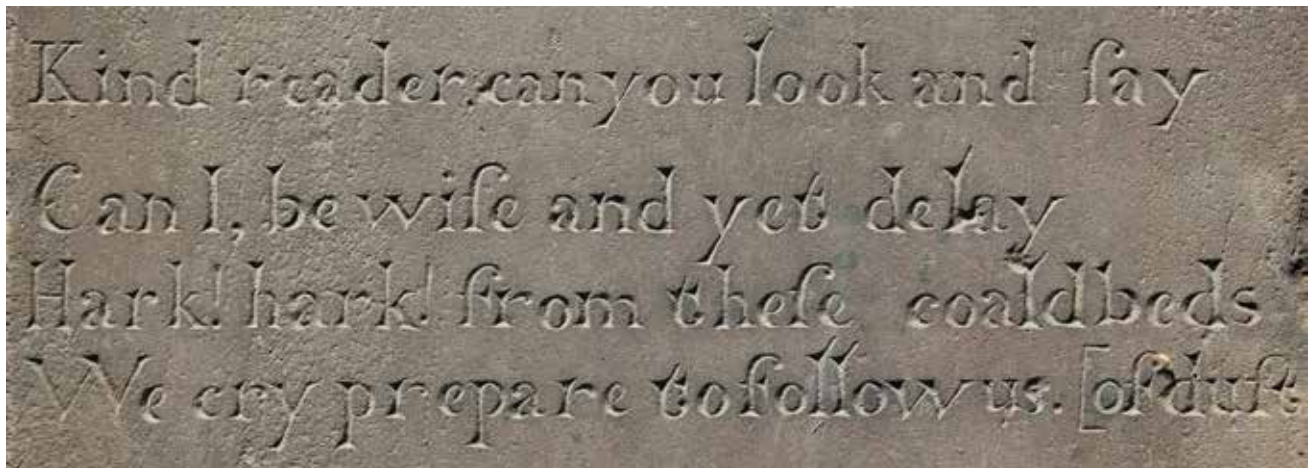 Kind reader, can you look and ſay
Can I, be wiſe and yet delay
Hark! hark! from theſe coald beds
We cry prepare to follow us. [of duſt